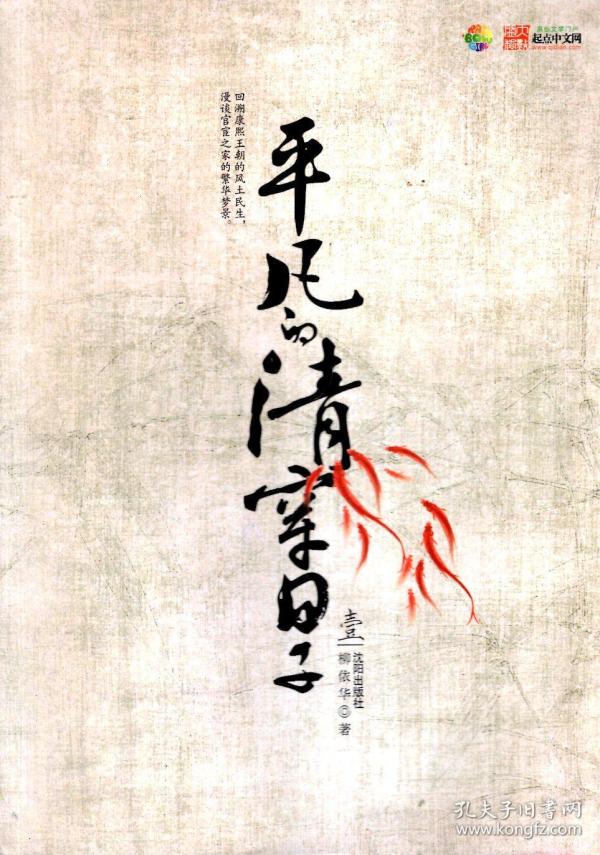 原创文学门户
起点中文网
www.qidian.com
回溯康熙王朝的风土民生，
漫谈官宦之家的繁华梦景。
平凡的清穿日子
壹
沈阳出版社
柳依华◎著
孔夫子旧书网
www.kongfz.com